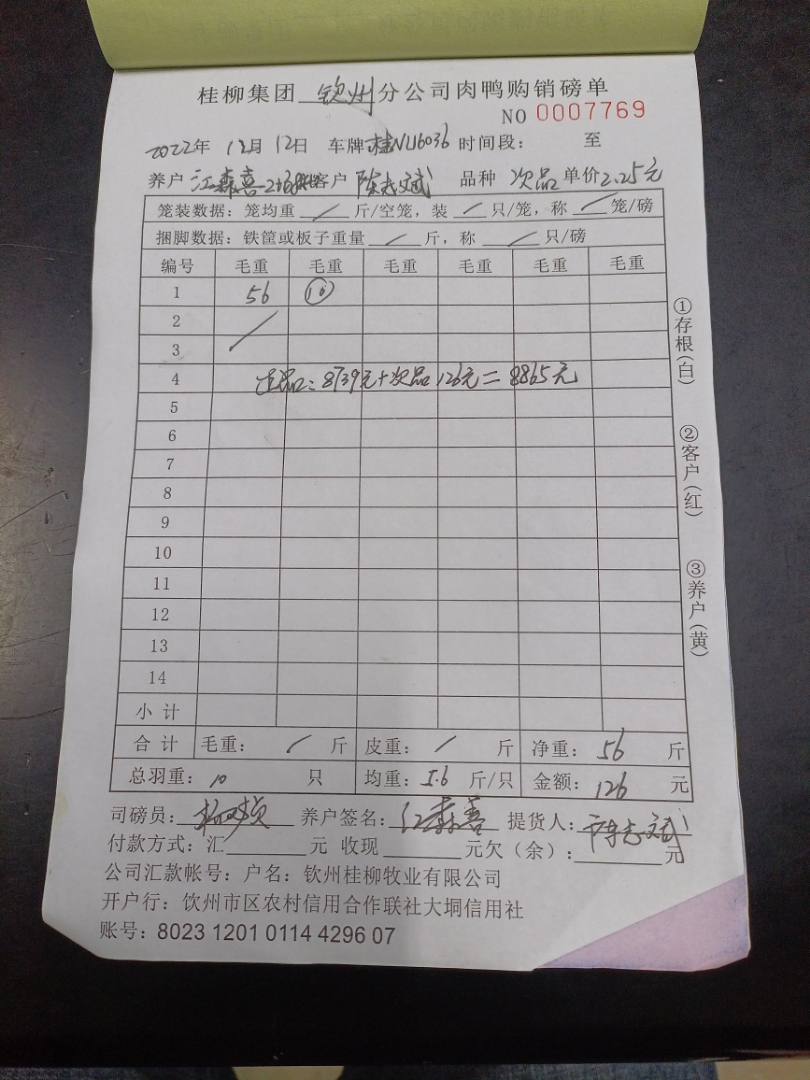 桂柳集团 钦州 分公司肉鸭购销磅单
NO 0007769
2022年 12月 12日 车牌 桂NU6036 时间段: 至
养户 江森喜 客户 陈志斌 品种 次品 单价 2.25元
笼装数据: 笼均重 / 斤/空笼, 装 / 只/笼, 称 / 笼/磅
捆脚数据: 铁筐或板子重量 / 斤, 称 / 只/磅
编号 毛重 毛重 毛重 毛重 毛重 毛重
1 56 10
2 /
3
4 正品: 8739元+次品 126元=8865元
5
6
7
8
9
10
11
12
13
14
小计
合计 毛重: / 斤 皮重: / 斤 净重: 56 斤
总羽重: 10 只 均重: 5.6 斤/只 金额: 126 元
司磅员: 养户签名: 江森喜 提货人: 陈志斌
付款方式: 汇 元 收现 元欠(余): 元
公司汇款帐号: 户名: 钦州桂柳牧业有限公司
开户行: 钦州市区农村信用合作联社大垌信用社
账号: 8023 1201 0114 4296 07
①存根(白)
②客户(红)
③养户(黄)